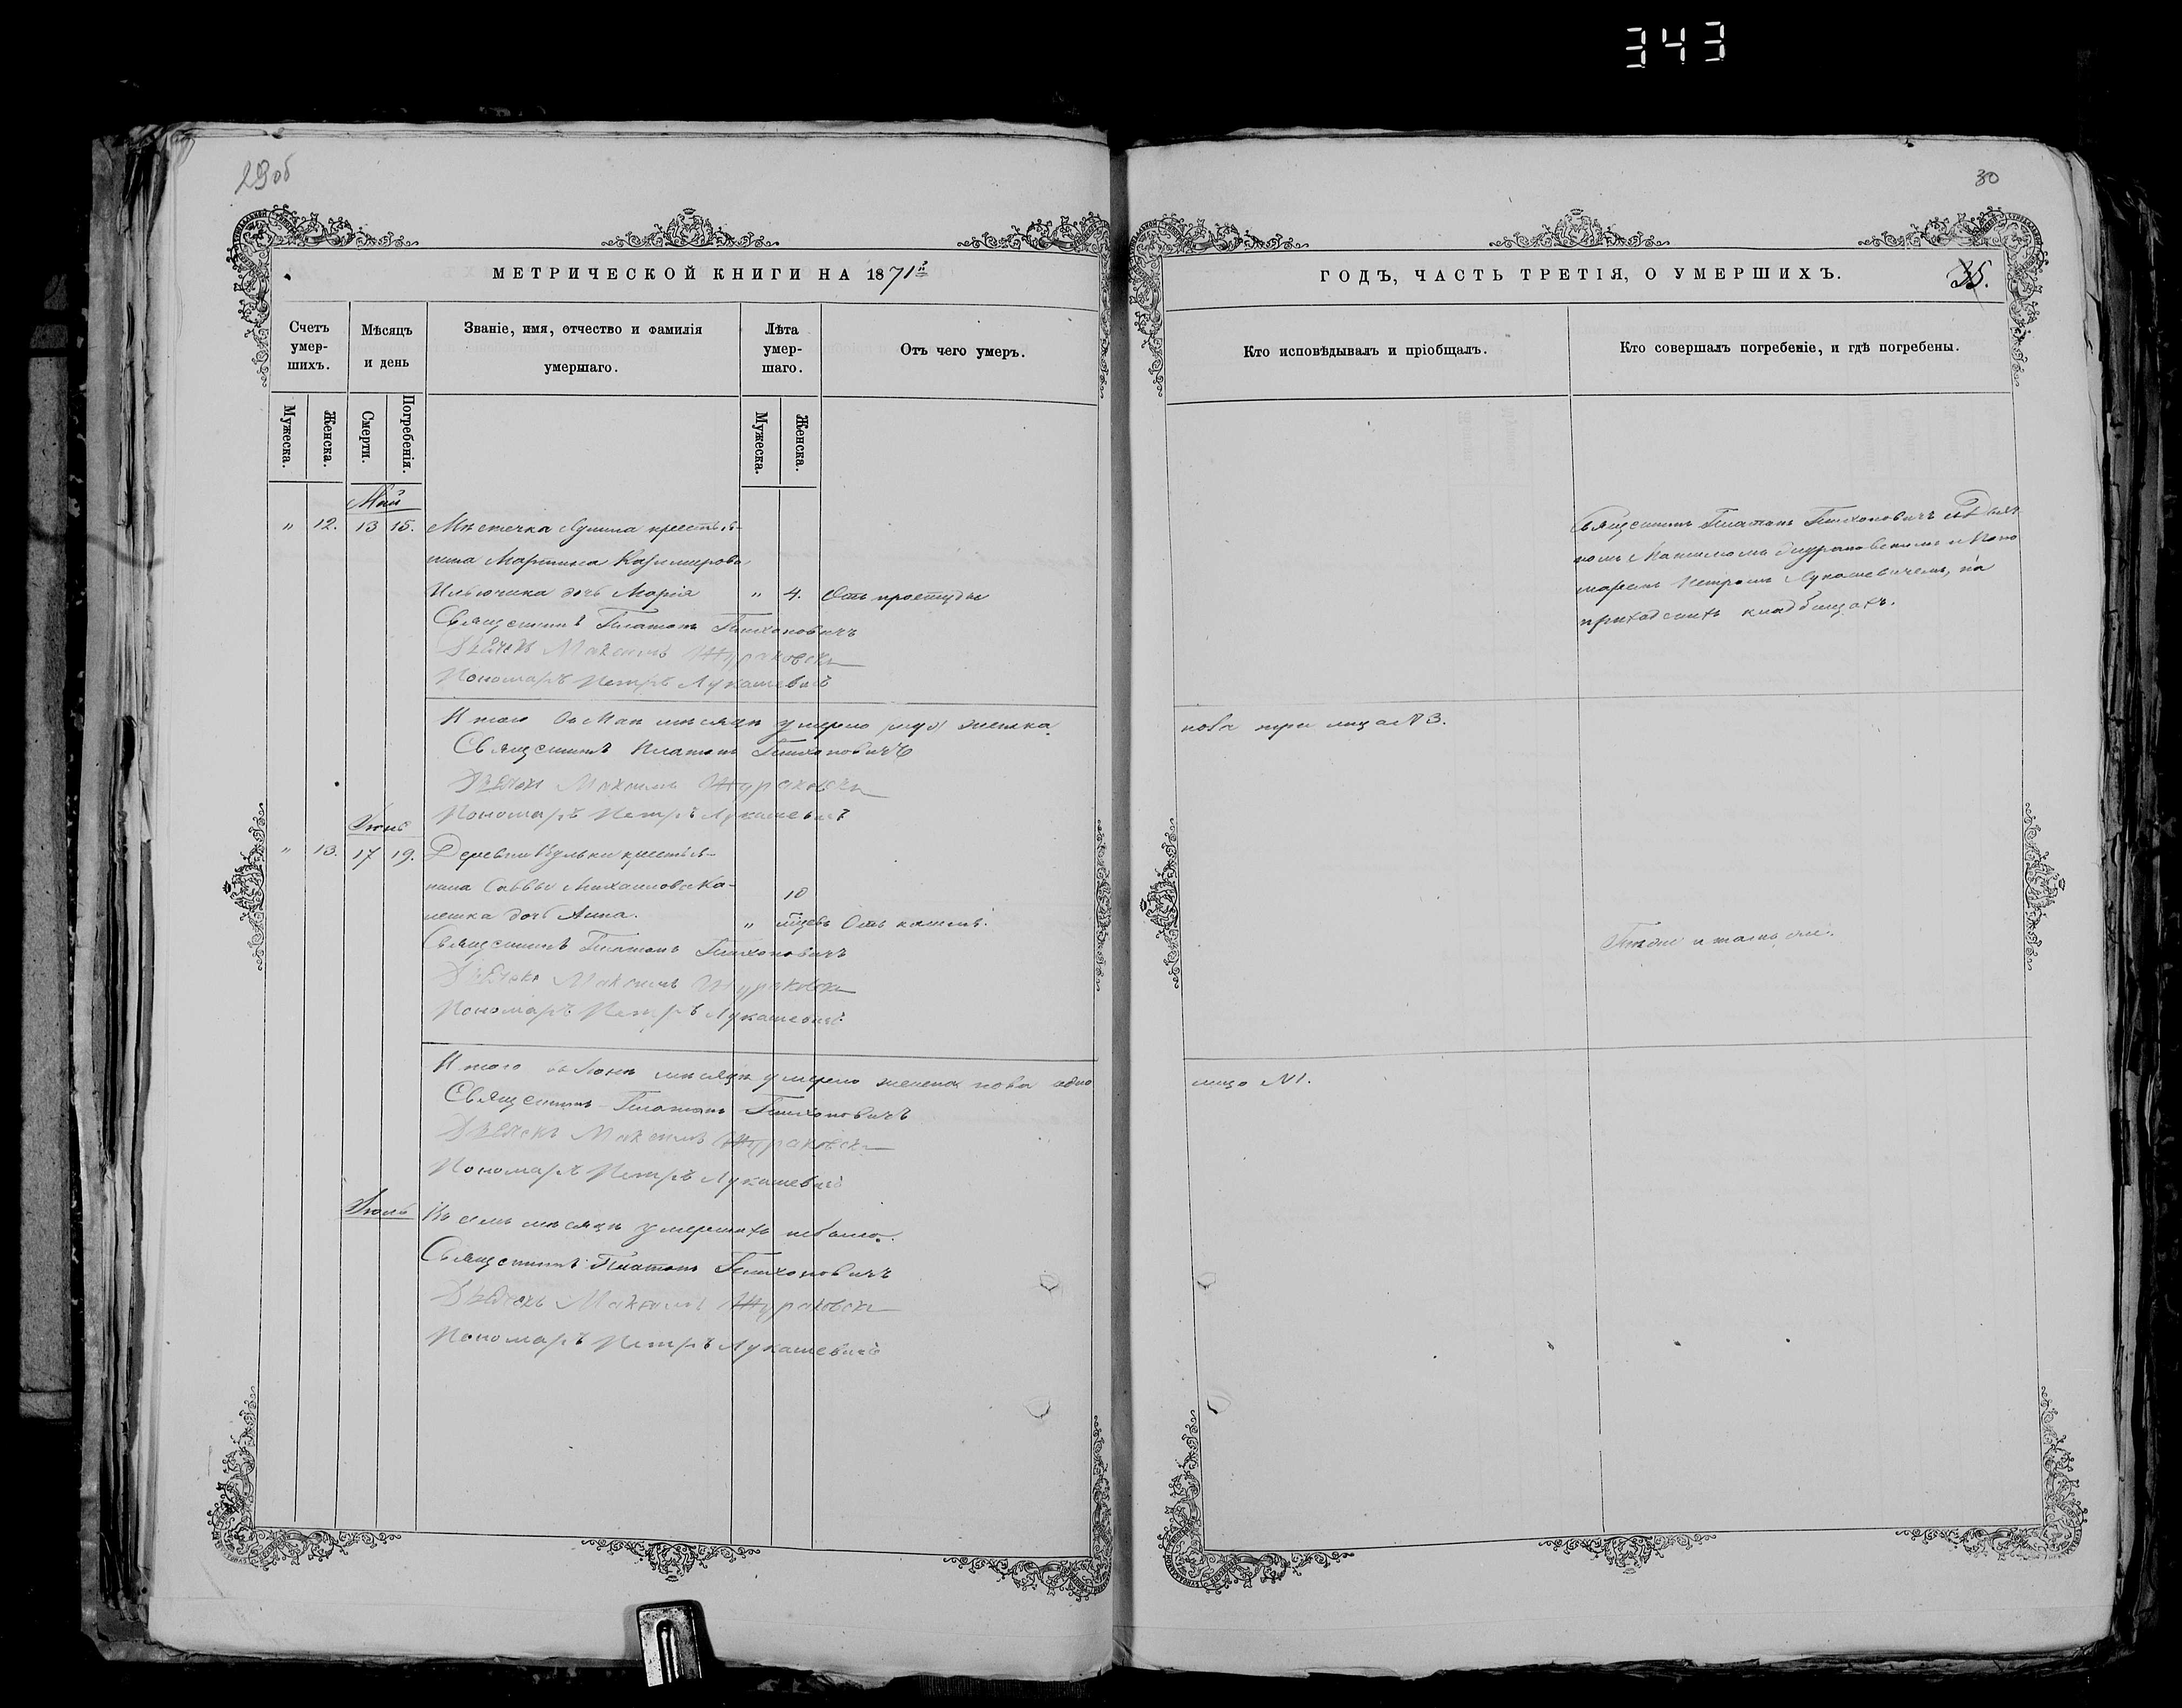 343
29об
30
МЕТРИЧЕСКОЙ КНИГИ НА 1871й
ГОДЪ, ЧАСТЬ ТРЕТІЯ, О УМЕРШИХЪ.
35.
Счетъ умер-шихъ.
Мѣсяцъ и день
Званіе, имя, отчество и фамилія умершаго.
Лѣта умер-шаго.
Отъ чего умеръ.
Кто исповѣдывалъ и пріобщалъ.
Кто совершалъ погребеніе, и гдѣ погребены.
Мужеска.
Женска.
Смерти.
Погребенія.
Мужеска.
Женска.
Май
" 12. 13 15. Мѣстечка крестья-
нина Мартина Казимирова
дочь Марія " 4. Отъ простуды
Священникъ Платонъ Тихоновичъ
Дьячекъ Максимъ Жураковски
Пономарь Петръ Лукашевичъ
Священникъ Платонъ Тихоновичъ съ Дьяч-
комъ Максимомъ Жураковскимъ и Поно
маремъ Петромъ Лукашевичемъ, на
приходскихъ кладбищахъ.
Итого въ Маѣ мѣсяцѣ умерло женска
пола три лица № 3.
Священникъ Платонъ Тихоновичъ
Дьячекъ Максимъ Жураковски
Пономарь Петръ Лукашевичъ
Іюнь
" 13. 17 19. Деревни крестья-
нина Саввы Михаилова Ка-
дочь Анна. " 10 мѣсяц. Отъ кашля.
Священникъ Платонъ Тихоновичъ
Дьячекъ Максимъ Жураковски
Пономарь Петръ Лукашевичъ
Тѣже и тамъ же.
Итого въ Іюнѣ мѣсяцѣ умерло женска пола одно
лицо №1.
Священникъ Платонъ Тихоновичъ
Дьячекъ Максимъ Жураковски
Пономарь Петръ Лукашевичъ
Іюль
Въ семъ мѣсяцѣ умершихъ небыло.
Священникъ Платонъ Тихоновичъ
Дьячекъ Максимъ Жураковски
Пономарь Петръ Лукашевичъ